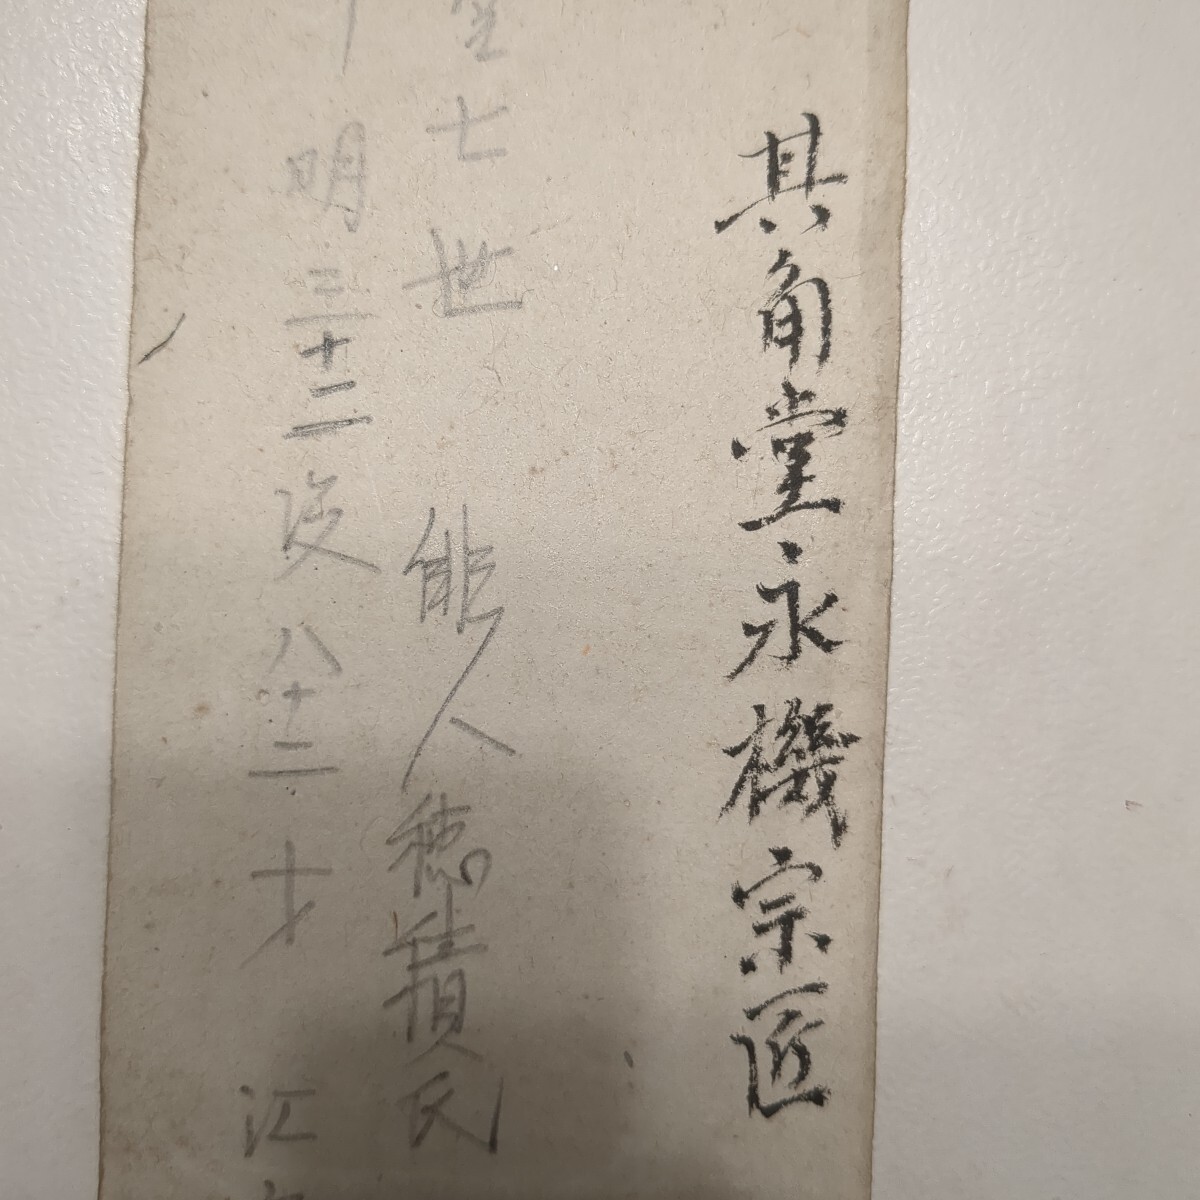 其角堂永機宗匠
堂七世 俳人穂積氏
明三十二没八十二才 江